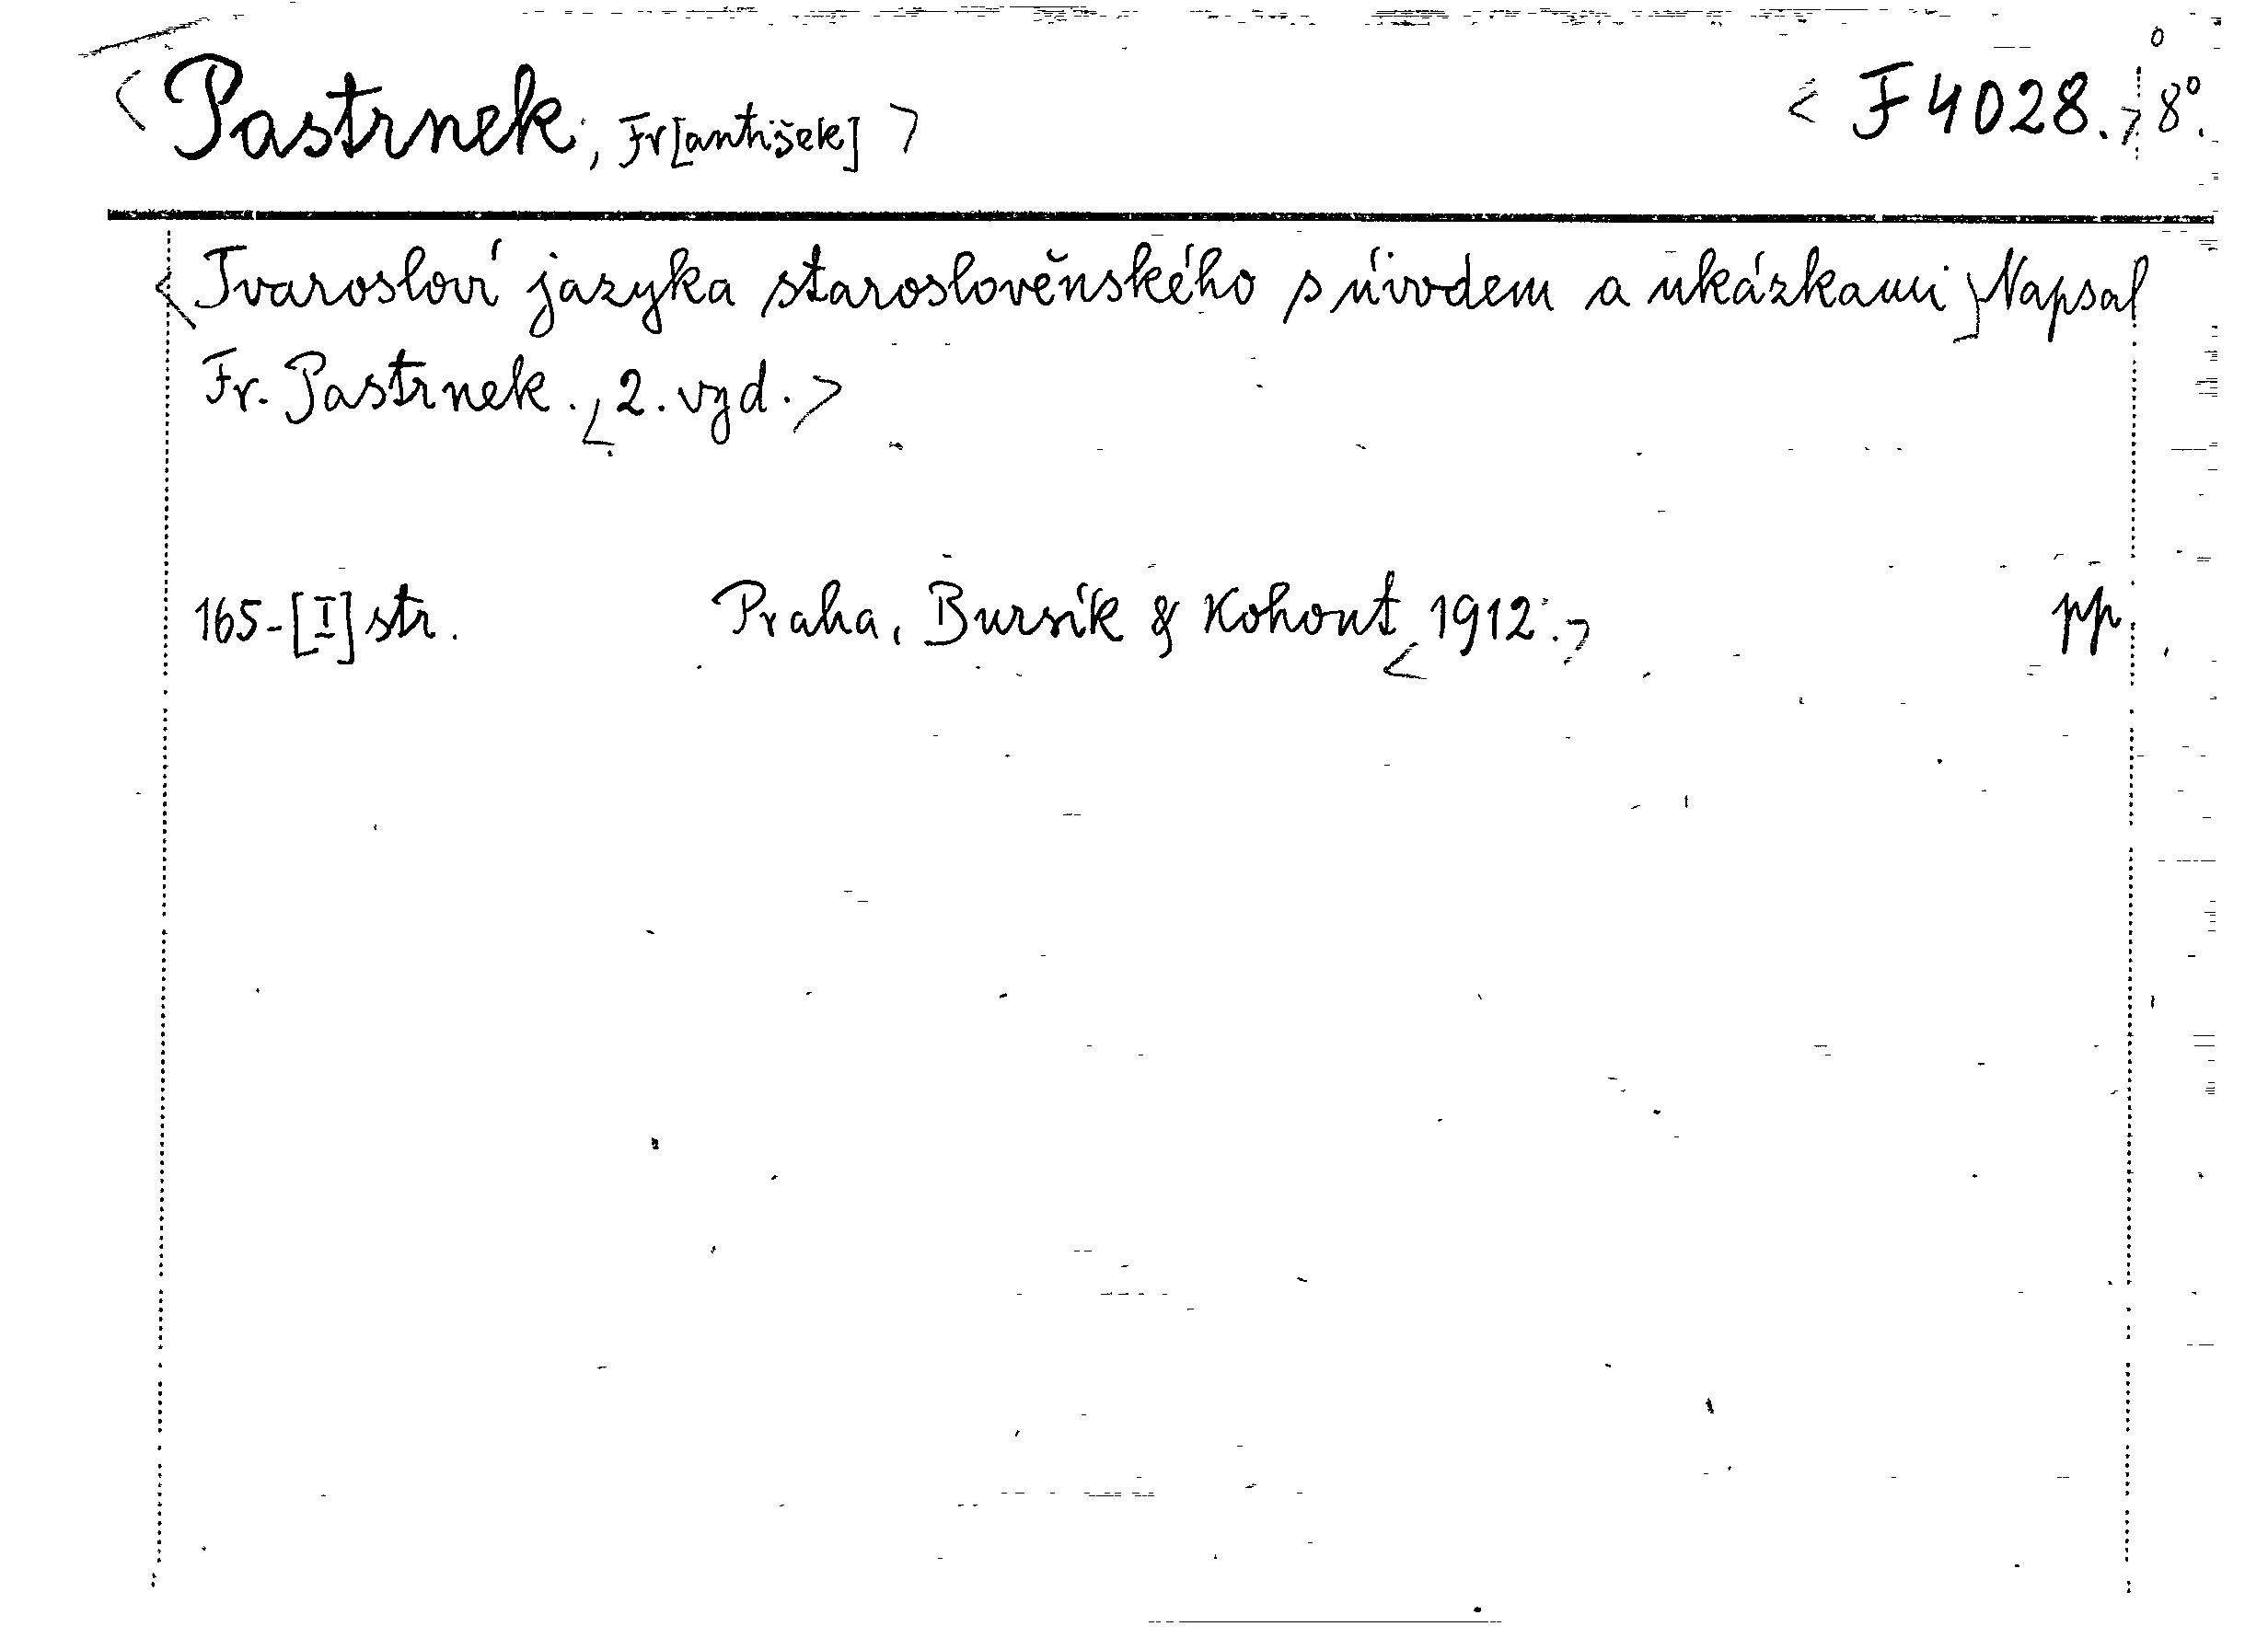 <Pastrnek, Fr[antišek]> <F 4028.> 8°.
<Tvarosloví jazyka staroslověnského s úvodem a ukázkami> Napsal
Fr. Pastrnek. <2. vyd.>
165-[I] str. Praha, Bursík & Kohout <1912.> pp.